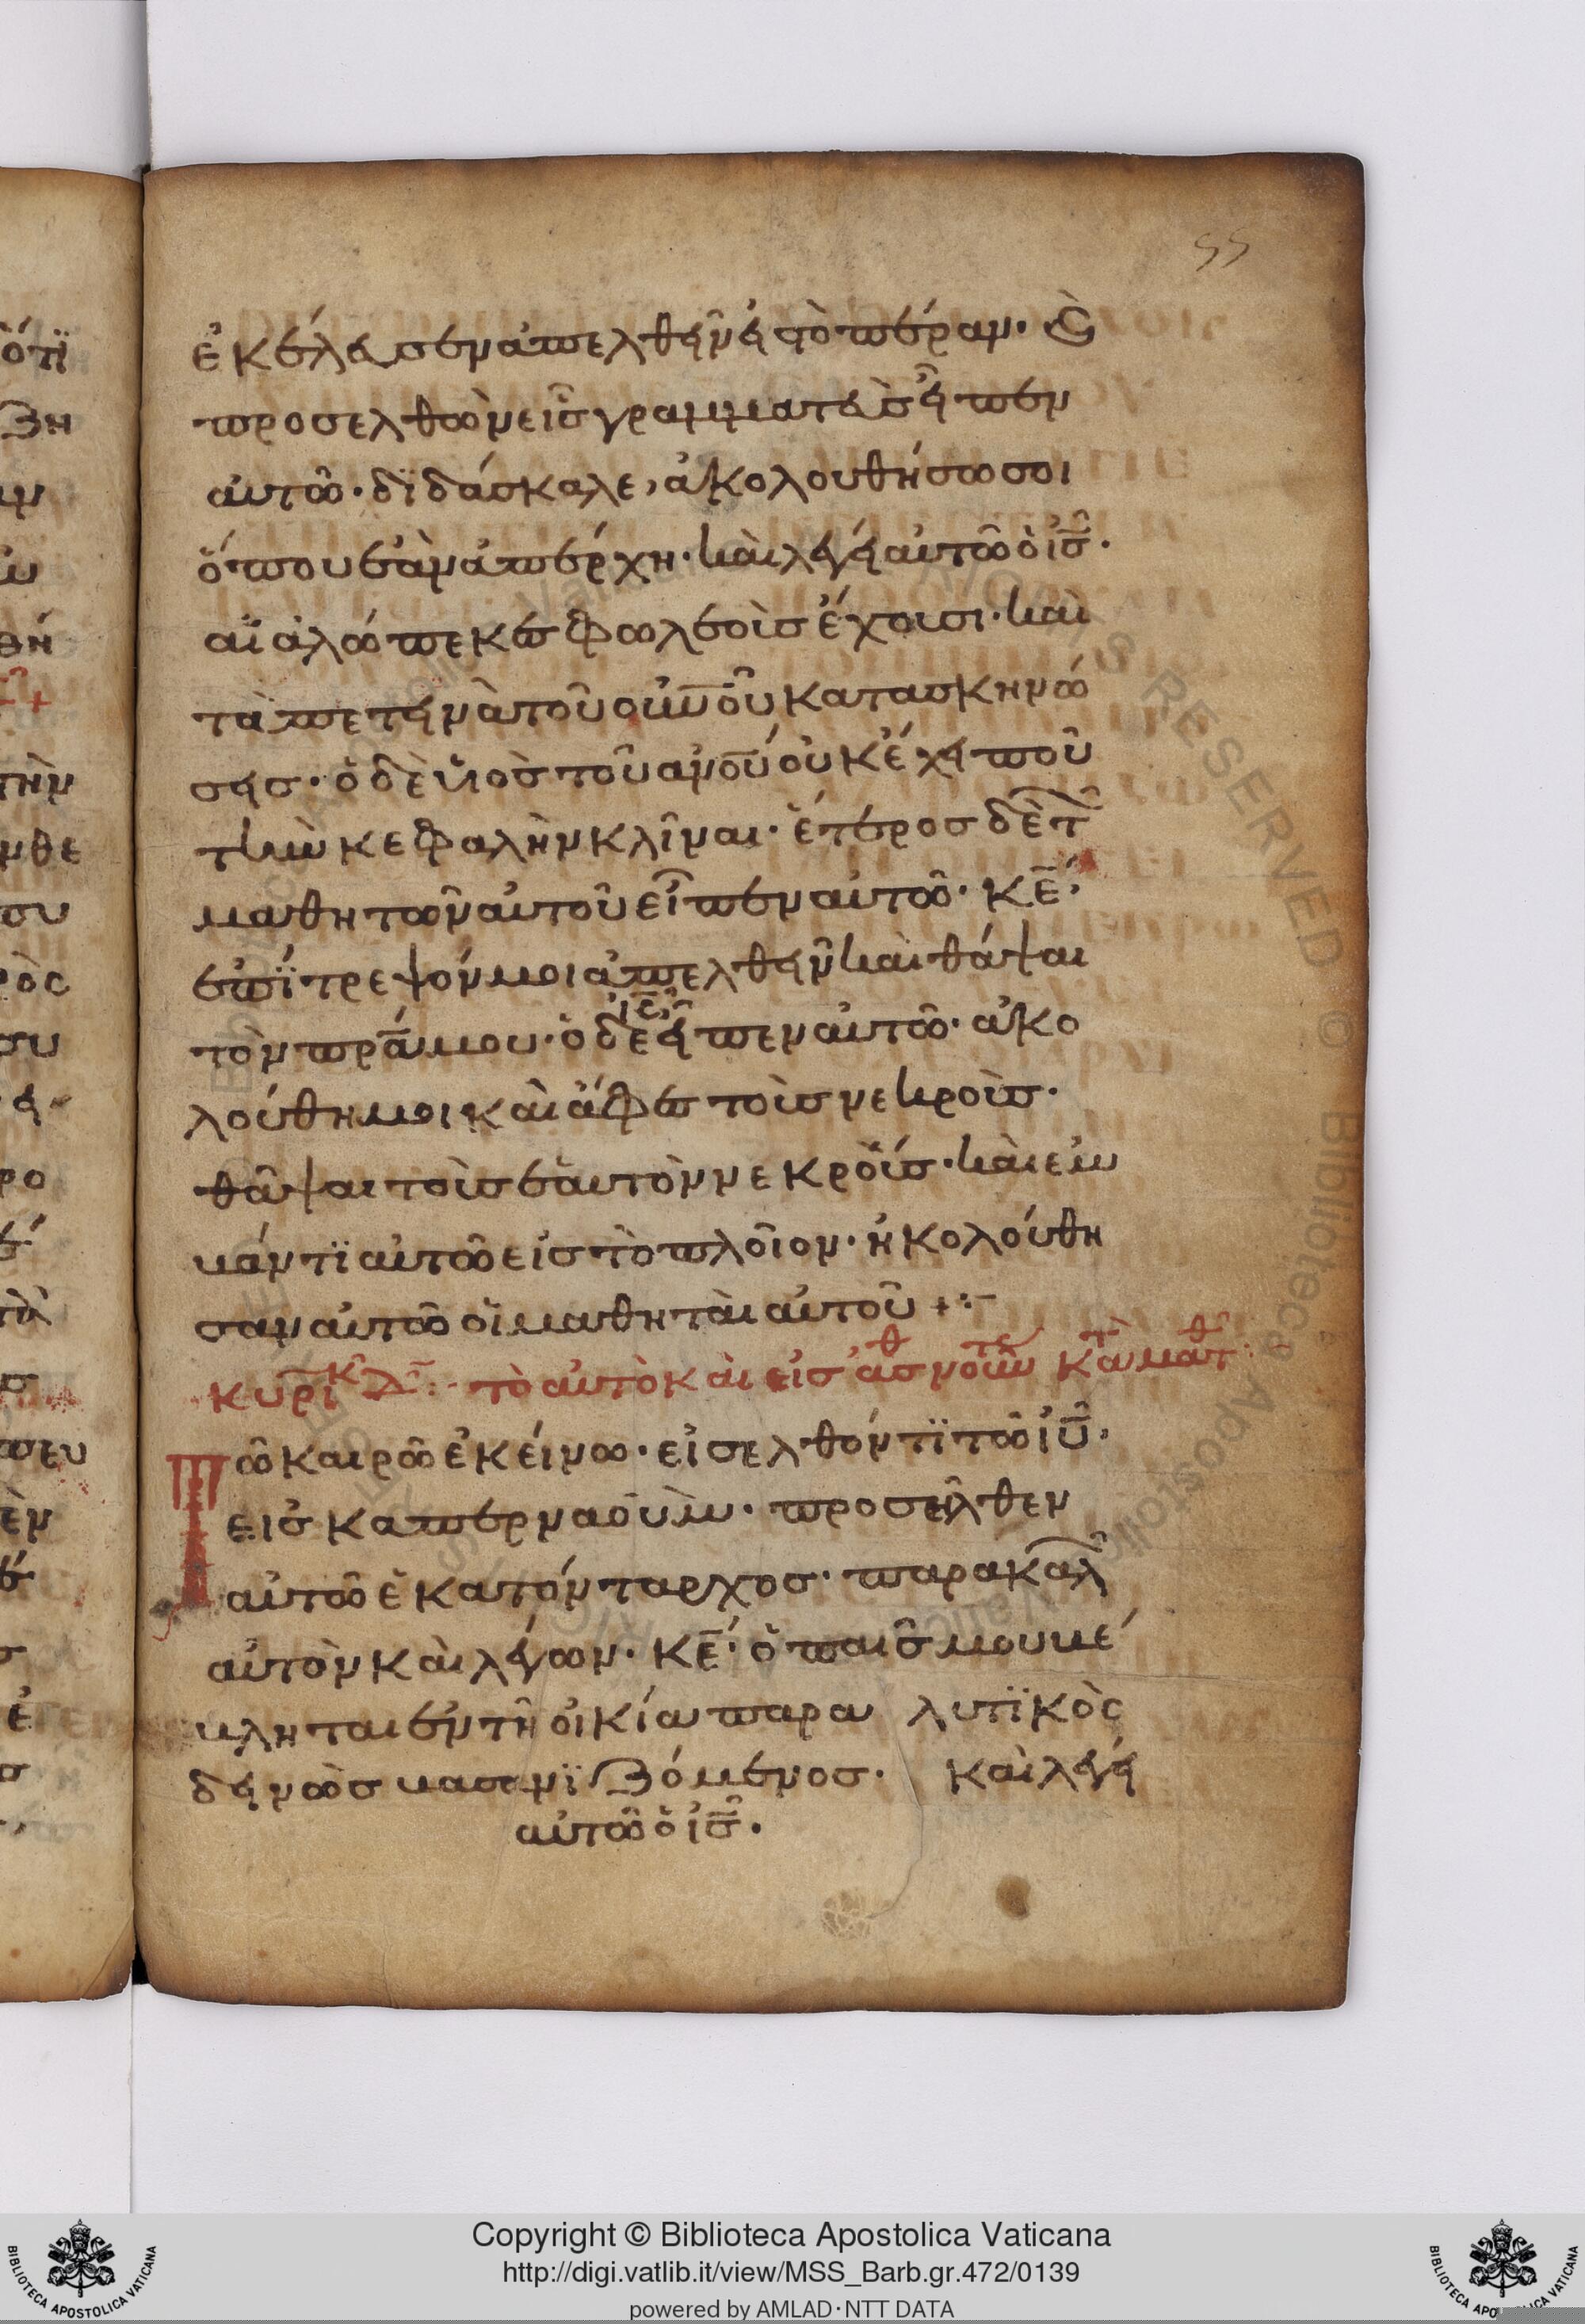 55
ἐκέλευσεν ἀπελθεῖν εἰς τὸ πέραν· καὶ
προσελθὼν εἷς γραμματεὺς εἶπεν
αὐτῶ· δϊδάσκαλε, ἀκολουθήσω σοι
ὅπου ἐὰν ἀπέρχη· καὶ λέγει αὐτῶ ὁ ι̅ς̅·
αἱ ἀλώπεκες φωλεοὺς ἔχουσι· καὶ
τὰ πετεινὰ τοῦ ου̅νο̅ῦ κατασκηνώ
σεις· ὁ δὲ υἱὸς τοῦ α̅νο̅υ οὐκ ἔχει ποῦ
τὴν κεφαλὴν κλῖναι· ἕτερος δὲ τῶν
μαθητῶν αὐτοῦ εἶπεν αὐτῶ· κ̅ε̅,
ἐπίτρεψόν μοι ἀπελθεῖν καὶ θάψαι
τὸν πρ̅α̅ μου· ὁ δὲ ι̅ς̅ εἶπεν αὐτῶ· ἀκο
λούθη μοι καὶ ἄφες τοὺς νεκροὺς·
θάψαι τοὺς ἑαυτὸν νεκρούς· καὶ ἐμ
βάντϊ αὐτῶ εἰς τὸ πλοῖον· ἠκολούθη
σαν αὐτῶ οἱ μαθηταὶ αὐτοῦ +:–
κυρϊκ δ̅: τὸ αὐτὸ καὶ εἰς ἀσθνοῦντ κατὰ ματθ:
Τῶ καιρῶ ἐκείνω· εἰσελθόντϊ τῶ ι̅υ̅·
εἰς καπερναούμ· προσῆλθεν
αὐτῶ ἑκατόνταρχος· παρακαλῶν
αὐτὸν καὶ λέγων· κ̅ε̅· ὁ παῖς μου βέ
βληται ἐν τῆ οἰκία παρα λυτϊκὸς
δεινῶς βασανϊζόμενος· καὶ λέγει
αὐτῶ ὁ ι̅ς̅·
ὅτϊ
Copyright © Biblioteca Apostolica Vaticana
http://digi.vatlib.it/view/MSS_Barb.gr.472/0139
powered by AMLAD·NTT DATA
BIBLIOTECA APOSTOLICA VATICANA
BIBLIOTECA APOSTOLICA VATICANA